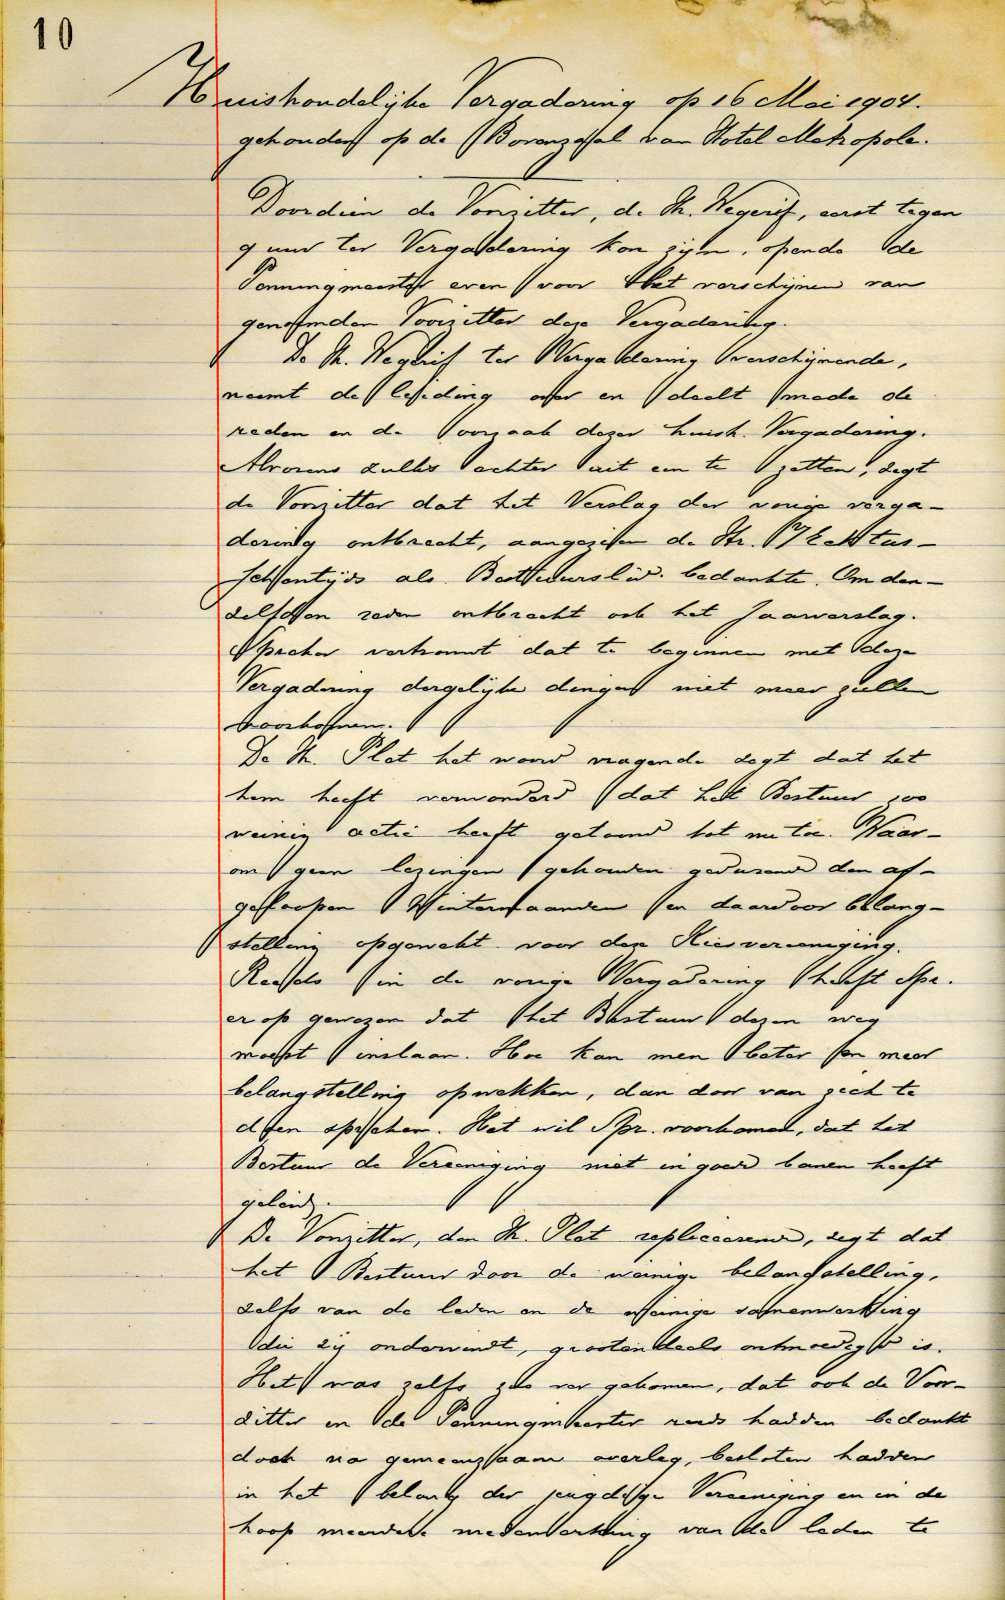 10
Huishoudelijke Vergadering op 16 Mei 1904.
gehouden op de Bovenzaal van Hotel Metropole.
Doordien de Voorzitter, de Hr. Wegerif, eerst tegen
9 uur ter Vergadering kon zijn, opende de
Penningmeester even voor het verschijnen van
genoemden Voorzitter deze Vergadering.
De Hr. Wegerif ter Vergadering verschijnende,
neemt de leiding over en deelt mede de
reden en de oorzaak dezer huish. Vergadering.
Alvorens zulks achter uit een te zetten, zegt
de Voorzitter dat het Verslag der vorige verga-
dering ontbreekt, aangezien de Hr. tus-
schentijds als Bestuurslid bedankte. Om den-
zelfden reden ontbreekt ook het Jaarverslag.
Spreker vertrouwt dat te beginnen met deze
Vergadering dergelijke dingen niet meer zullen
voorkomen.
De Hr. Plat het woord vragende zegt dat het
hem heeft verwonderd dat het Bestuur zoo
weinig actie heeft getoond tot nu toe. Waar-
om geen lezingen gehouden gedurende den af-
geloopen Wintermaanden en daardoor belang-
stelling opgewekt voor deze Kiesvereeniging.
Reeds in de vorige Vergadering heeft Spr.
er op gewezen dat het Bestuur dezen weg
moest inslaan. Hoe kan men beter en meer
belangstelling opwekken, dan door van zich te
doen spreken. Het wil Spr. voorkomen, dat het
Bestuur de Vereeniging niet in goede banen heeft
geleid.
De Voorzitter, den Hr. Plat repliceerende, zegt dat
het Bestuur door de weinige belangstelling,
zelfs van de leden en de weinige samenwerking
die zij ondervindt, grootendeels ontmoedigd is.
Het was zelfs zoo ver gekomen, dat ook de Voor-
zitter en de Penningmeester reeds hadden bedankt
doch na gemeenzaam overleg, besloten hadden
in het belang der jeugdige Vereeniging en in de
hoop meerdere medewerking van de leden te